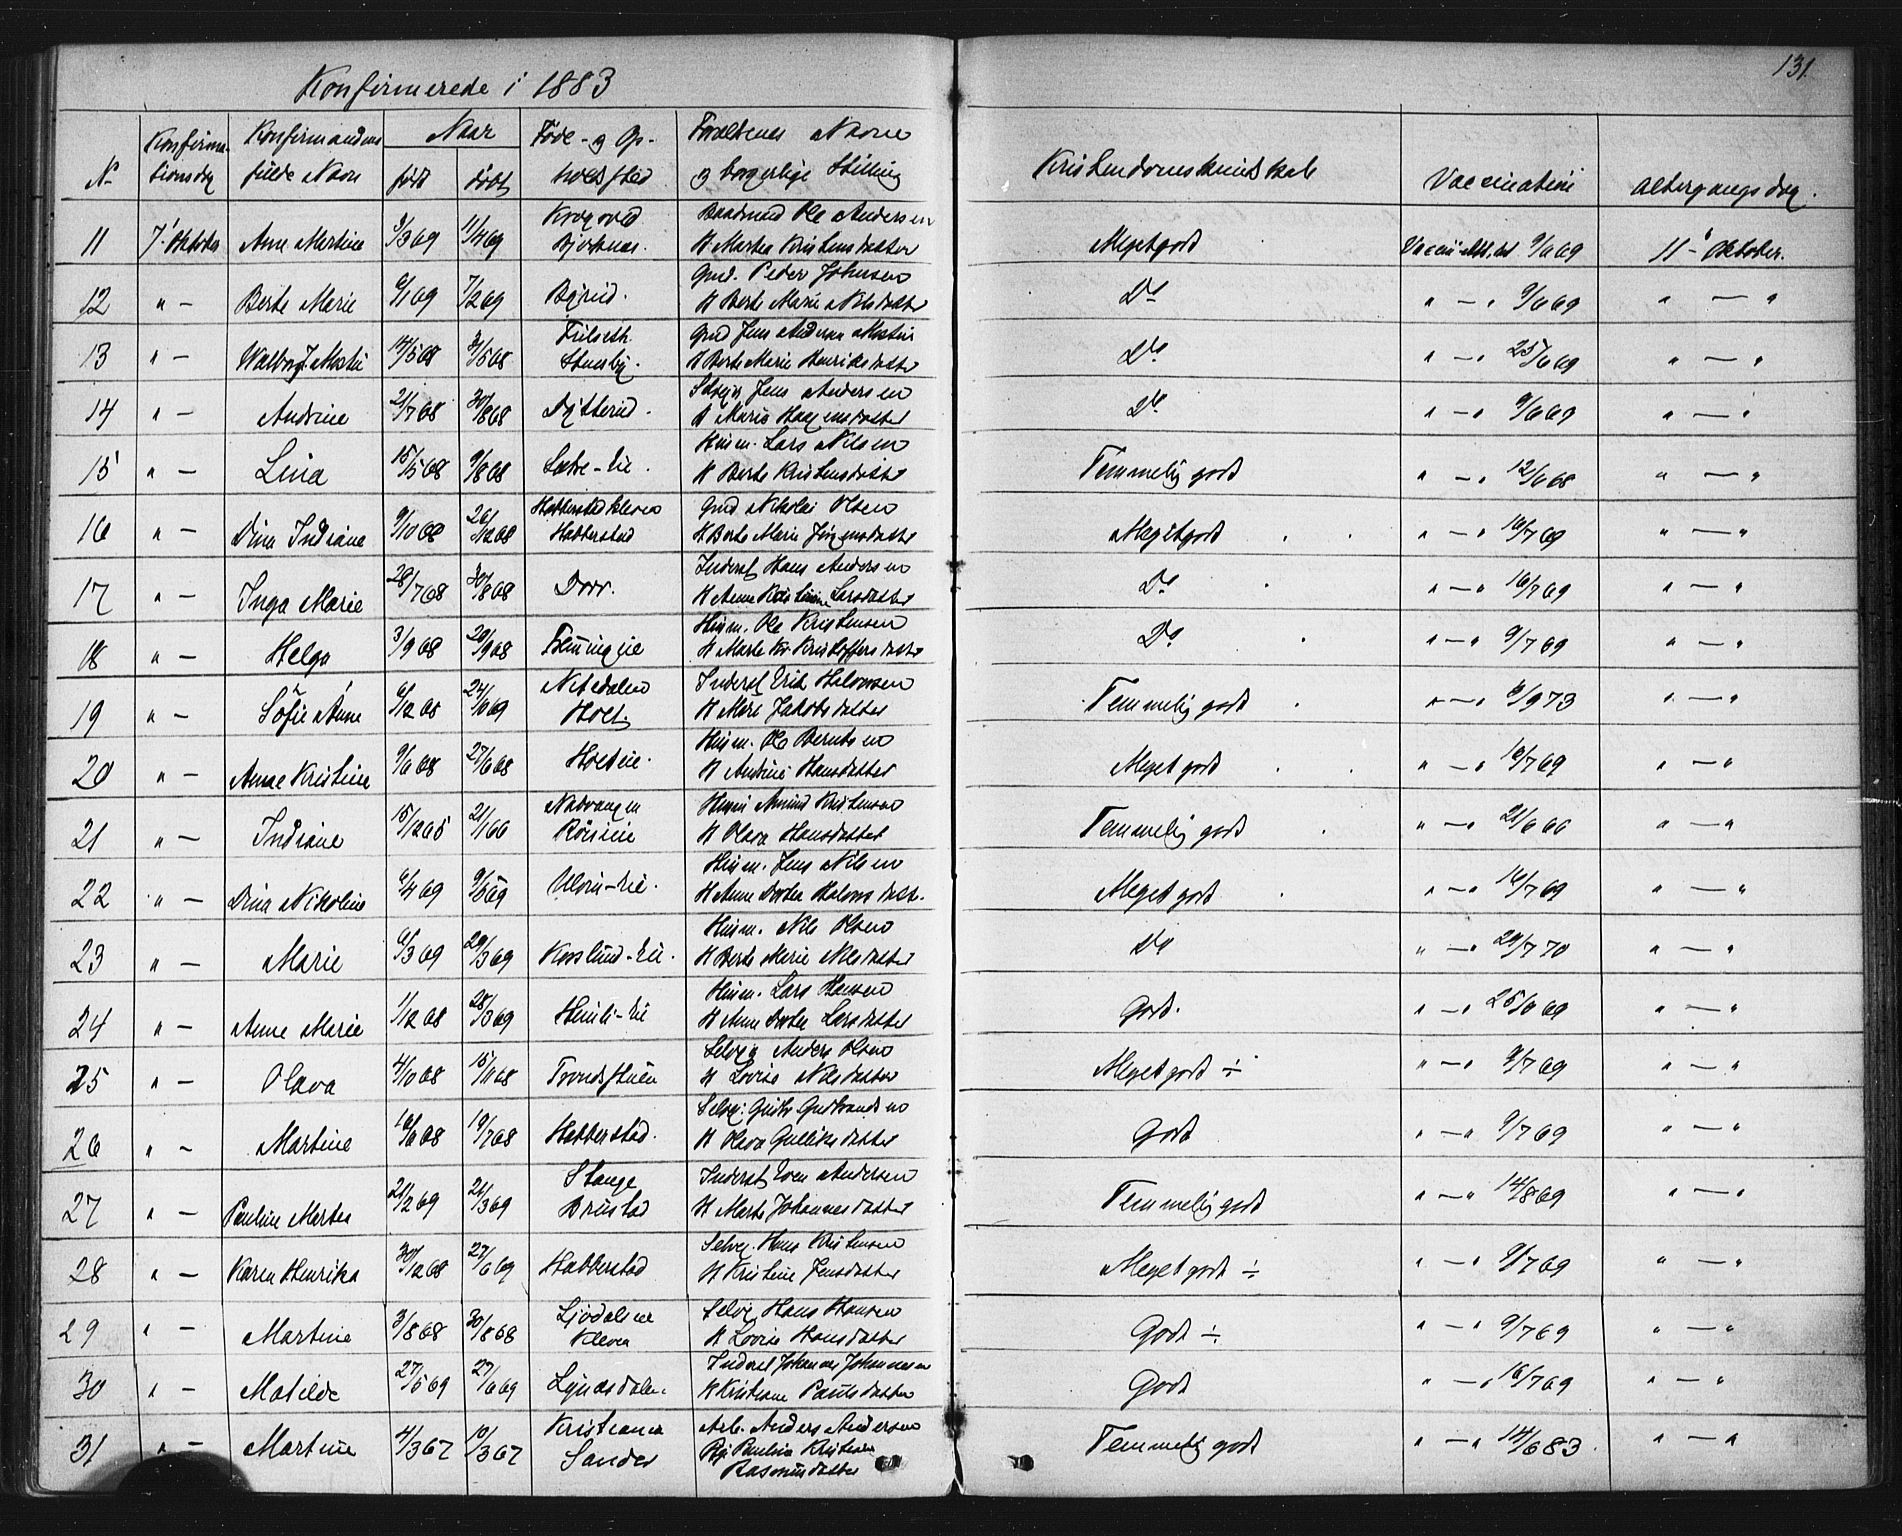 131.
Konfirmerede i 1883
N. Konfirmationsdag Konfirmandens fulde Navn Naar født døbt Føde- og Opholdssted Forældrenes Navne og borgerlige Stilling Kristendomskundskab Vaccination Altergangsdag.
11 7' Oktober Anne Martine 3/3 69 11/4 69 Ole Andersen
H Marthea Kristensdatter Megetgodt 9/6 69 11' Oktober.
12 " — Berte Marie 6/1 69 7/2 69 Gmd. Peder Johnsen
H Berte Marie Nilsdatter Do " — " 9/6 69 " — "
13 " — 14/5 68 31/5 68 Gmd Jens
H Berte Marie Henriksdatter Do " — " 25/6 69 " — "
14 " — Andrine 21/7 68 30/8 68 Dytterud. Selvej Jens Andersen
H Maria Do " — " 9/6 69 " — "
15 " — Lina 15/5 68 9/8 68 Husm. Lars Nilsen
H Berte Kristensdatter Temmelig godt " — " 12/6 68 " — "
16 " — Dina Indiane 9/10 68 26/12 68 Habberstad Gmd Nikolai Olsen
H Berte Marie Jørgensdatter Megetgodt " — " 16/7 69 " — "
17 " — Inga Marie 28/7 68 30/8 68 Dorr. Inderst Hans Andersen
H Anne Kristine Larsdatter Do " — " 16/7 69 " — "
18 " — Helga 3/9 68 20/9 68 Husm. Ole Kristensen
H Marte Kristoffersdatter Do " — " 9/7 69 " — "
19 " — Sofie Anne 6/12 68 24/10 69 Nitedalen
Holt. Inderst Erik Halvorsen
H Mari Jakobsdatter Temmelig godt " — " 6/9 73 " — "
20 " — Anne Kristine 9/6 68 27/6 68 Holteie. Husm. Ole Berntsen
H Andrine Hansdatter Meget godt " — " 16/7 69 " — "
21 " — Indiane 15/12 65 21/1 66 Husm Amund Kristensen
H Olava Hansdatter Temmelig godt " — " 21/6 66 " — "
22 " — Dina Nikoline 6/4 69 9/5 69 Husm. Jens Nilsen
H Anne Dortea Halvorsdatt. Meget godt " — " 14/7 69 " — "
23 " — Marie 6/3 69 29/3 69 Husm. Nils Olsen
H Berte Marie Nilsdatter Do " — " 20/7 70 " — "
24 " — Anne Marie 1/12 68 28/3 69 Husm. Lars Hansen
H Anne Dortea Larsdatter Godt. " — " 25/6 69 " — "
25 " — Olava 4/10 68 15/11 68 Selvej Anders Olsen
H Lovise Nilsdatter Meget godt ÷ " — " 9/7 69 " — "
26 " — Martine 16/6 68 19/7 68 Habberstad. Selvej. Gudbrandsen
H Olava Gulliksdatter Godt " — " 9/7 69 " — "
27 " — Pauline Martea 21/2 69 21/3 69 Stange
Brustad Inderst Even Andersen
H Marte Johannesdatter Temmelig godt " — " 14/8 69 " — "
28 " — Karen Henrika 30/12 68 27/6 69 Habberstad Selvej. Hans Kristensen
H Kristine Jensdatter Meget godt ÷ " — " 9/7 69 " — "
29 " — Martine 3/8 68 30/8 68 Kleven Selvej Hans Hansen
H Lovise Hansdatter Godt ÷ " — " 9/7 69 " — "
30 " — Matilde 27/5 69 27/6 69 Inderst Johannes Johannesen
H Kristiane Paulsdatter Godt " — " 16/7 69 " — "
31 " — Martine 4/3 67 10/3 67 Kristiania
Sander Arb. Anders Andersen
Pg Paulina Kristine
Rasmusdatter Temmelig godt " — " 14/6 83. " — "